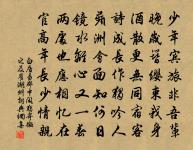 少年賓旅非吾輩
晚歲簪纓束我身
酒散更無同宿客
詩成長作獨吟人
蘋洲會面知何日
鏡水離心又一春
兩處也應相憶在
官高年長少情親
白居易郡中閒獨寄微
之及崔湖州